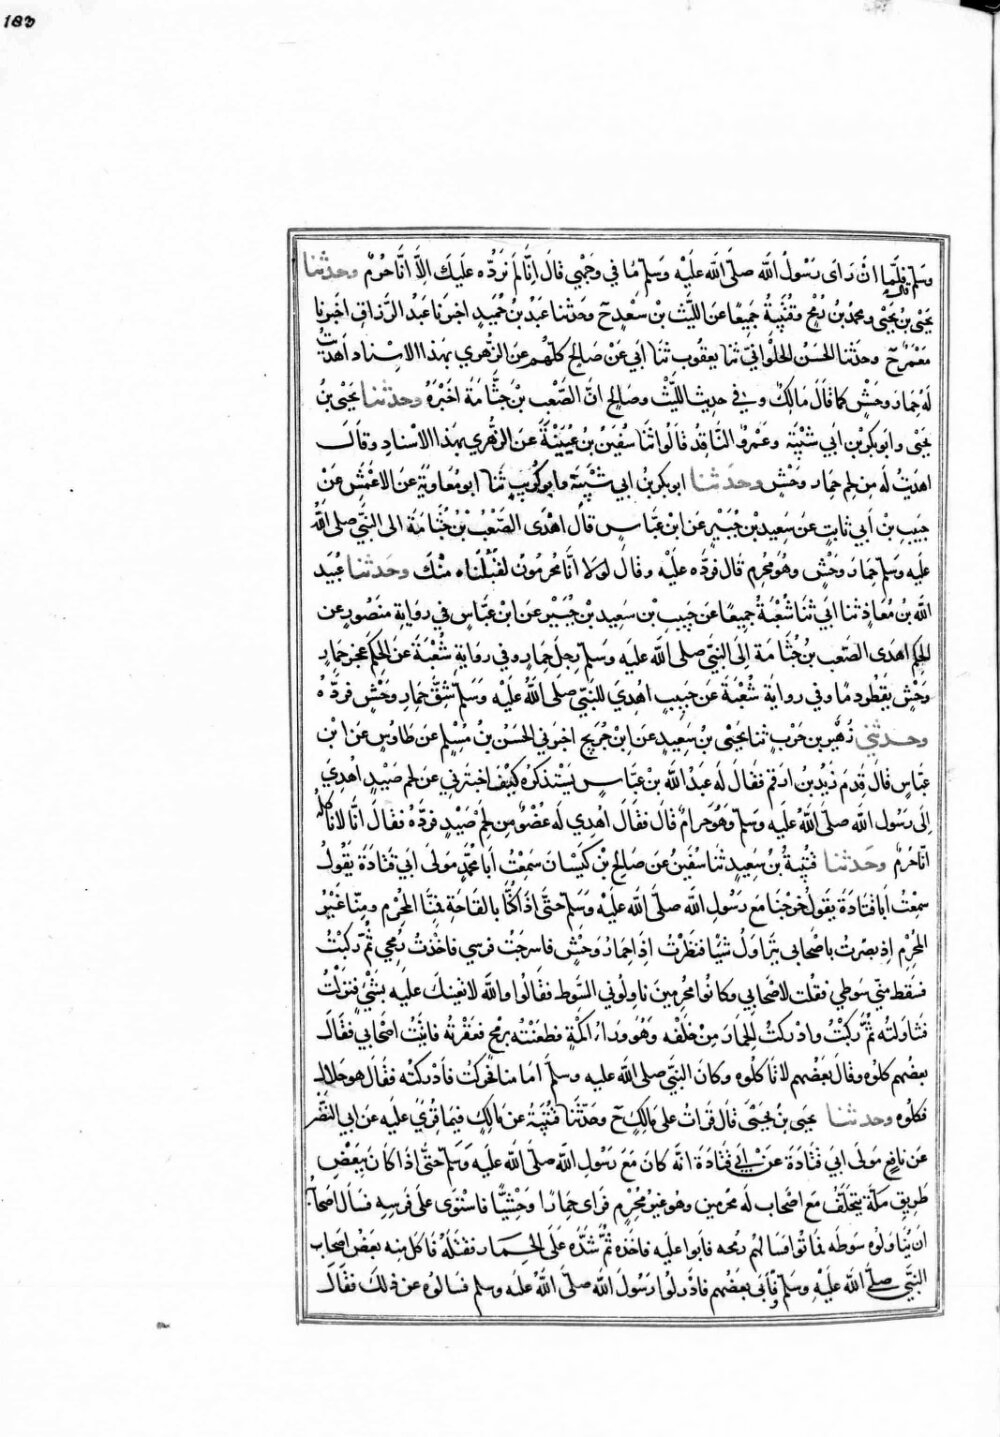 183
وسلم قال فلما ان رأى رسول الله صلى الله عليه وسلم ما في وجهي قال انا لم نرده عليك الا انا حرم وحدثنا
يحيى بن يحيى ومحمد بن رمح وقتيبة جميعا عن الليث بن سعد ح وحدثنا عبد بن حميد اخبرنا عبد الرزاق اخبرنا
معمر ح وحدثنا الحسن الحلواني ثنا يعقوب ثنا ابي عن صالح كلهم عن الزهري بهذا الاسناد اهديت
له حمار وحش كما قال مالك وفي حديث الليث وصالح ان الصعب بن جثامة اخبره وحدثنا يحيى بن
يحيى وابو بكر بن ابي شيبة وعمرو الناقد قالوا ثنا سفين بن عيينة عن الزهري بهذا الاسناد وقال
اهديت له من لحم حمار وحش وحدثنا ابو بكر بن ابي شيبة وابو كريب ثنا ابو معاوية عن الاعمش عن
حبيب بن أبي ثابت عن سعيد بن جبير عن ابن عباس قال اهدى الصعب بن جثامة الى النبي صلى الله
عليه وسلم حمار وحش وهو محرم قال فرده عليه وقال لولا انا محرمون لقبلناه منك وحدثنا عبيد
الله بن معاذ ثنا ابي ثنا شعبة جميعا عن حبيب بن سعيد بن جبير عن ابن عباس في رواية منصور عن
الحكم اهدى الصعب بن جثامة إلى النبي صلى الله عليه وسلم رجل حمار وفي رواية شعبة عن الحكم عجز حمار
وحش يقطر دما وفي رواية شعبة عن حبيب اهدي للنبي صلى الله عليه وسلم شق حمار وحش فرده
وحدثني زهير بن حرب ثنا يحيى بن سعيد عن ابن جريج اخبرني الحسن بن مسلم عن طاوس عن ابن
عباس قال قدم زيد بن ارقم فقال له عبد الله بن عباس يستذكره كيف اخبرتني عن لحم صيد اهدي
إلى رسول الله صلى الله عليه وسلم وهو حرام قال فقال اهدي له عضو من لحم صيد فرده فقال انا لا ناكله
انا حرم وحدثنا قتيبة بن سعيد ثنا سفين عن صالح بن كيسان سمعت أبا محمد مولى ابي قتادة يقول
سمعت ابا قتادة يقول خرجنا مع رسول الله صلى الله عليه وسلم حتى اذا كنا بالقاحة فمنا المحرم ومنا غير
المحرم اذ بصرت باصحابي يتراءون شيا فنظرت اذا حمار وحش فاسرجت فرسي فاخذت رمحي ثم ركبت
فسقط مني سوطي فقلت لاصحابي وكانوا محرمين ناولوني السوط فقالوا والله لا نعينك عليه بشئ فنزلت
فتناولته ثم ركبت وادركت الحمار من خلفه وهو وراء اكمة فطعنته برمح فعقرته فاتيت اصحابي فقال
بعضهم كلوه وقال بعضهم لا تاكلوه وكان النبي صلى الله عليه وسلم امامنا فحركت فأدركته فقال هو حلال
فكلوه وحدثنا يحيى بن يحيى قال قرات على مالك ح وحدثنا قتيبة عن مالك فيما قرئ عليه عن ابي النضر
عن نافع مولى ابي قتادة عن أبي قتادة انه كان مع رسول الله صلى الله عليه وسلم حتى اذا كان ببعض
طريق مكة يتخلف مع اصحاب له محرمين وهو غير محرم فراى حمارا وحشيا فاستوى على فرسه فسال اصحابه
ان يناولوه سوطه فابوا فسالهم رمحه فابوا عليه فاخذه ثم شد على الحمار فقتله فاكل منه بعض اصحاب
النبي صلى الله عليه وسلم وأبى بعضهم فادركوا رسول الله صلى الله عليه وسلم فسالوه عن ذلك فقال